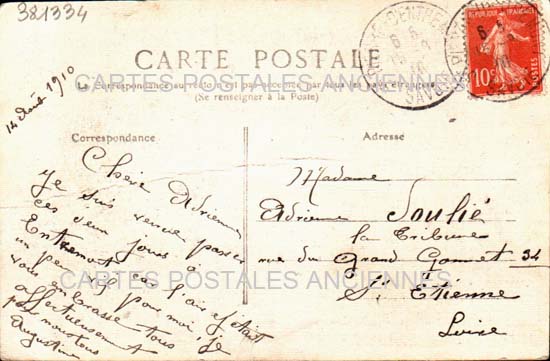 381334
CARTE POSTALE
CARTES POSTALES ANCIENNES
La Correspondance au recto n'est pas acceptée par tous les pays étrangers
(Se renseigner à la Poste)
REPUBLIQUE FRANÇAISE
10
POSTES
14 Août 1910
Correspondance
Chère Adrienne
Je suis venue passer
ces deux jours à
Entremont car l'air
un peu pour moi, je
vous embrasse tous
affectueusement
Augustine
Adresse
Madame
Adrienne Soulié
la Tribune
rue du Grand Gonnet 34
St Etienne
Loire
CARTES POSTALES ANCIENNES